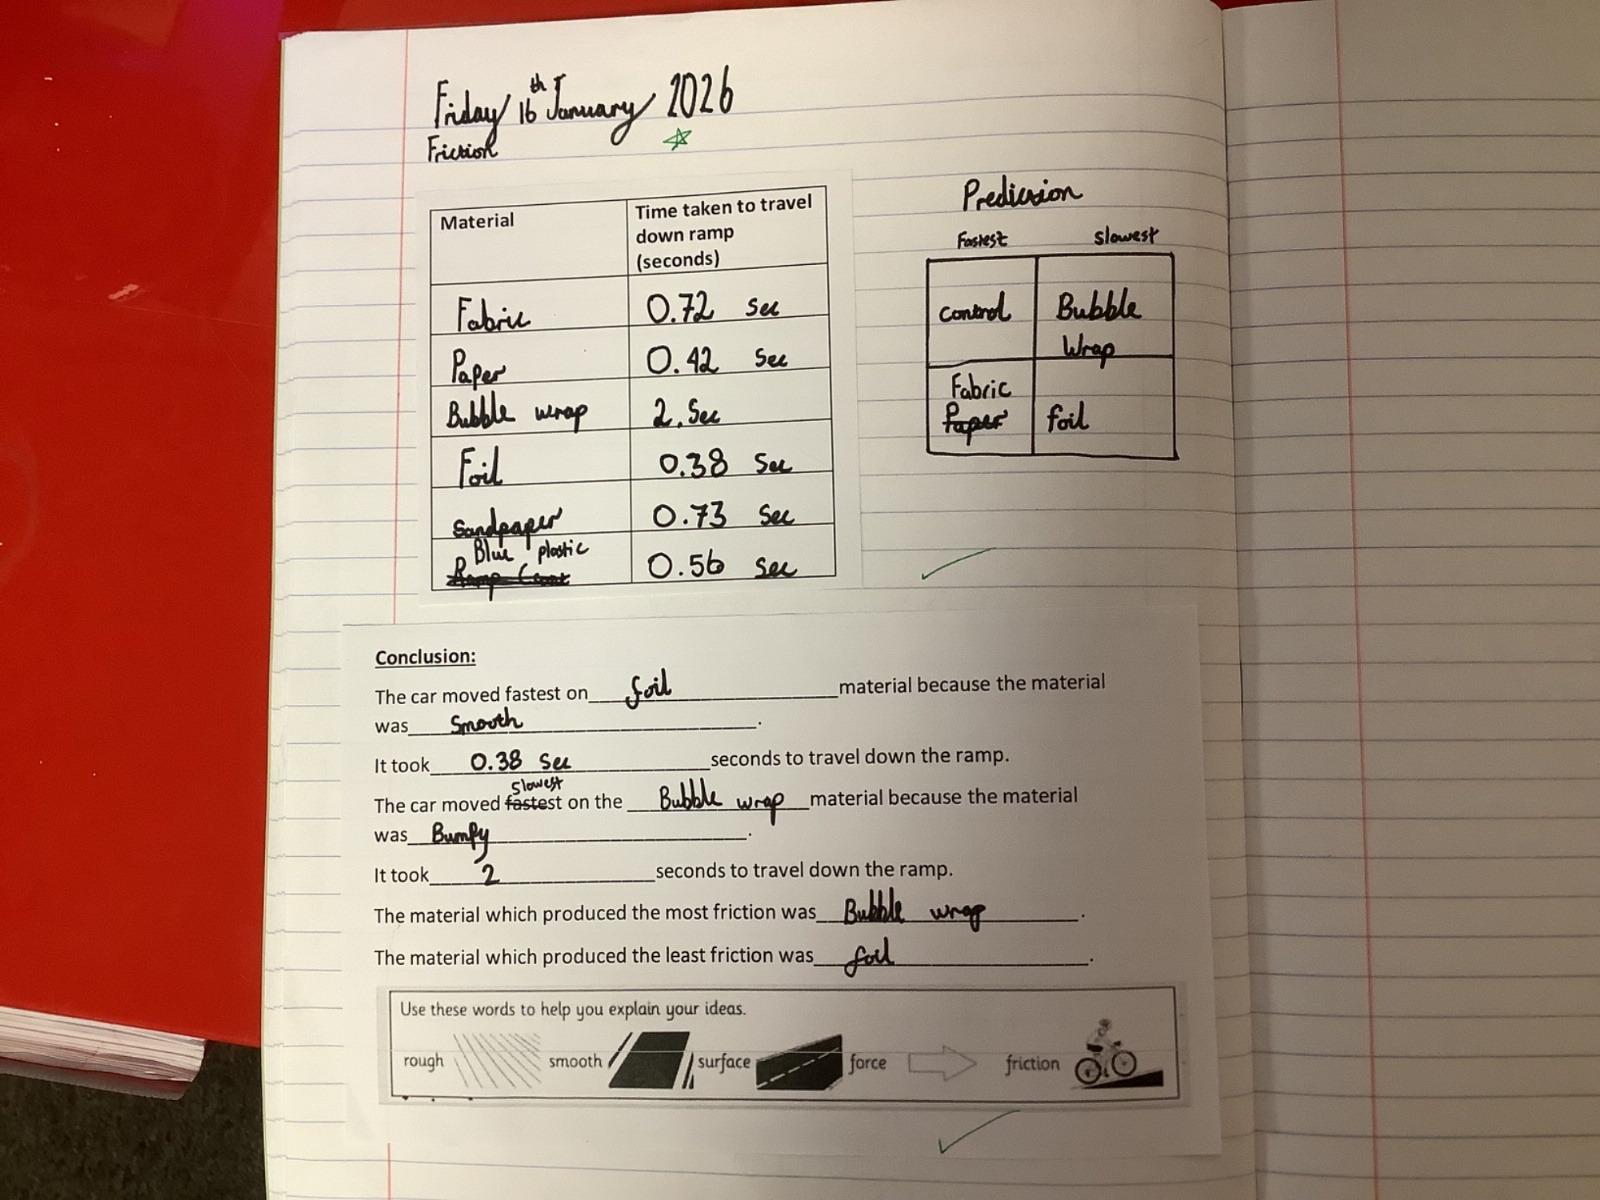 Friday 16th January 2026
Friction
Material
Time taken to travel
down ramp
(seconds)
Fabric 0.72 sec
Paper 0.42 sec
Bubble wrap 2. Sec
Foil 0.38 Sec
Sandpaper 0.73 Sec
Blue plastic
0.56 sec
Prediction
Fastest slowest
control Bubble
Wrap
Fabric
Paper foil
Conclusion:
The car moved fastest on foil material because the material
was Smooth.
It took 0.38 Sec seconds to travel down the ramp.
slowest
The car moved fastest on the Bubble wrap material because the material
was Bumpy.
It took 2 seconds to travel down the ramp.
The material which produced the most friction was Bubble wrap.
The material which produced the least friction was foil.
Use these words to help you explain your ideas.
rough smooth surface force friction